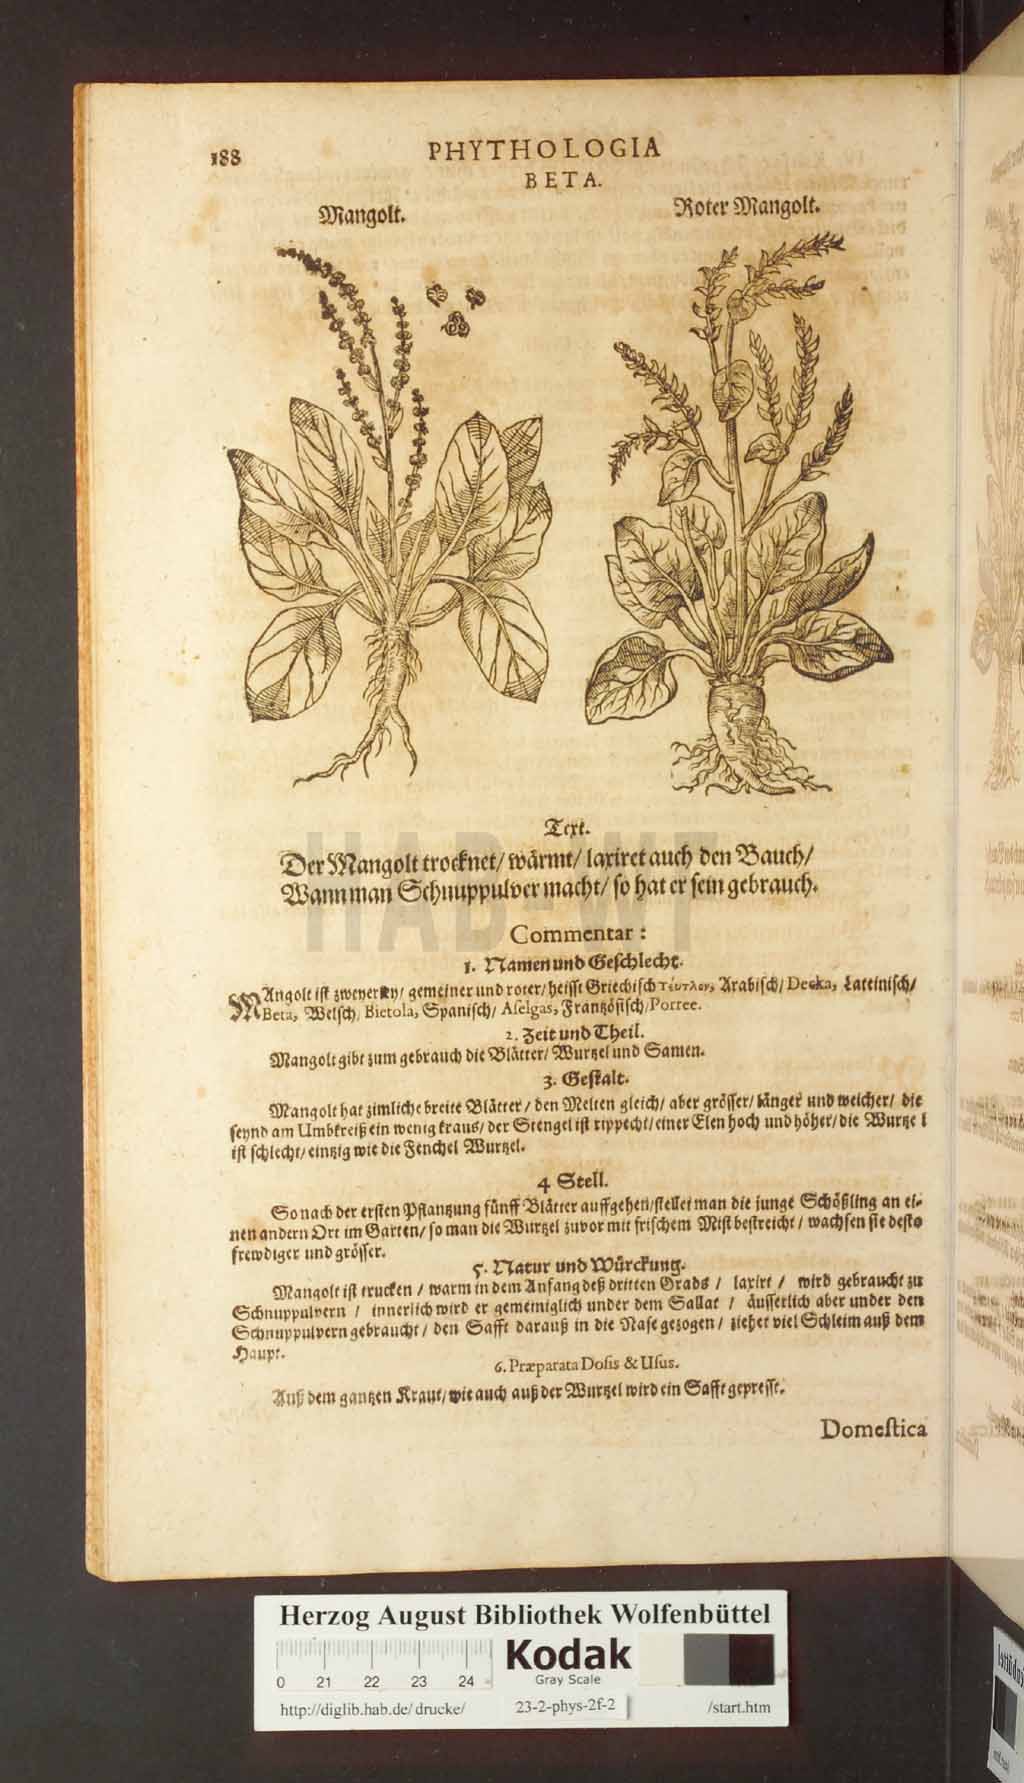 188
PHYTHOLOGIA
BETA.
Mangolt.
Roter Mangolt.
Text.
Der Mangolt trocknet/ wärmt/ laxiret auch den Bauch/
Wann man Schnuppulver macht/ so hat er sein gebrauch.
Commentar:
1. Namen und Geschlecht.
MAngolt ist zweyerley/ gemeiner und roter/ heisst Griechisch τεύτλον, Arabisch/ Decka, Lateinisch/
Beta, Welsch/ Bietola, Spanisch/ Aſelgas, Frantzösisch/ Porree.
2. Zeit und Theil.
Mangolt gibt zum gebrauch die Blätter/ Wurtzel und Samen.
3. Gestalt.
Mangolt hat zimliche breite Blätter/ den Melten gleich/ aber grösser/ länger und weicher/ die
seynd am Umbkreiß ein wenig kraus/ der Stengel ist rippecht/ einer Elen hoch und höher/ die Wurtzel
ist schlecht/ eintzig wie die Fenchel Wurtzel.
4 Stell.
So nach der ersten Pflantzung fünff Blätter auffgehen/ stellet man die junge Schößling an ei-
nen andern Ort im Garten/ so man die Wurtzel zuvor mit frischem Mist bestreicht/ wachsen sie desto
frewdiger und grösser.
5. Natur und Würckung.
Mangolt ist trucken/ warm in dem Anfang deß dritten Grads/ laxirt/ wird gebraucht zu
Schnuppulvern/ innerlich wird er gemeiniglich under dem Sallat/ äusserlich aber under den
Schnuppulvern gebraucht/ den Safft darauß in die Nase gezogen/ ziehet viel Schleim auß dem
Haupt.
6. Præparata Doſis & Uſus.
Auß dem gantzen Kraut/ wie auch auß der Wurtzel wird ein Safft gepresst.
Domeſtica
HAB-WF
Herzog August Bibliothek Wolfenbüttel
Kodak
Gray Scale
0 21 22 23 24
http://diglib.hab.de/drucke/ 23-2-phys-2f-2 /start.htm